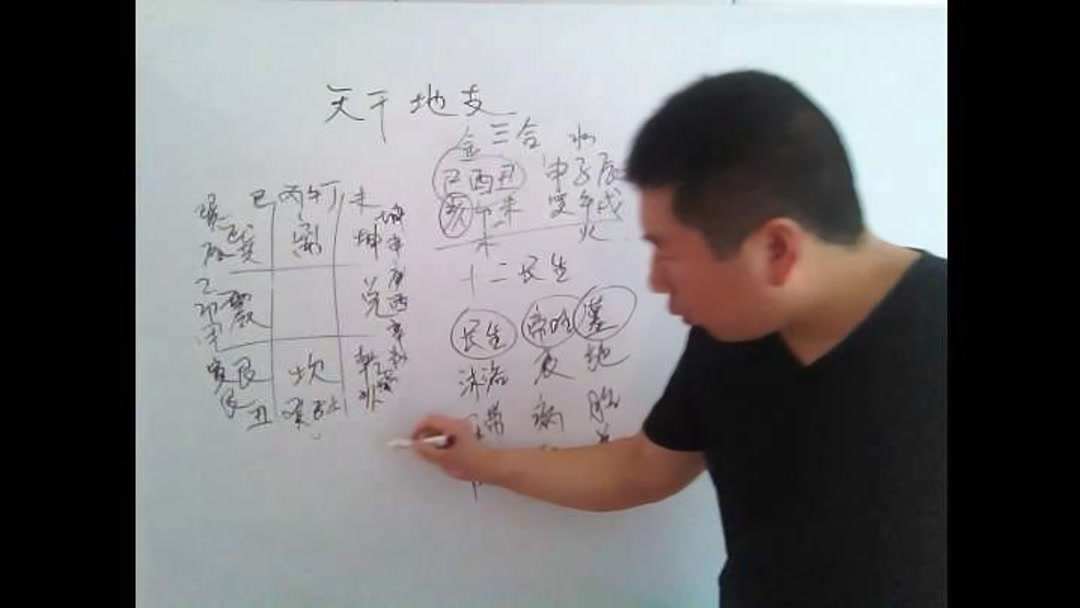 天干地支
金三合 水
巳酉丑 申子辰
亥卯未 寅午戌
木 火
十二长生
长生 帝旺 墓
沐浴 衰 绝
冠带 病 胎
巳 丙午丁 未
辰 巽 离 坤 申
庚
乙 兑 酉
卯 震 辛
甲
寅 艮 坎 乾
丑